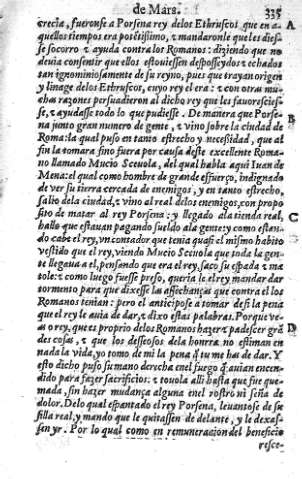 de Mars. 335
crecia, fueronse a Porsena rey delos Ethruscos que en a-
quellos tiempos era potētissimo, z mandaronle que les dies-
se socorro z ayuda contra los Romanos: diziendo que no
deuia consentir que ellos estouiessen desposseydos z echados
tan ignominiosamente de su reyno, pues que trayan origen
y linage delos Ethruscos, cuyo rey el era: z con otras mu-
chas razones persuadieron al dicho rey que les fauoresciess-
se, z ayudasse todo lo que pudiesse. De manera que Porse-
na junto gran numero de gente, z vino sobre la ciudad de
Roma: la qual puso en tanto estrecho y necessidad, que al
fin la tomara sino fuera por causa deste excellente Roma-
no llamado Mucio Sceuola, del qual habla aqui Iuan de
Mena: el qual como hombre de grande esfuerço, indignado
de ver su tierra cercada de enemigos, y en tanto estrecho,
salio dela ciudad, z vino al real delos enemigos, con propo
sito de matar al rey Porsena: y llegado ala tienda real,
hallo que estauan pagando sueldo ala gente: y como estan-
do cabe el rey, vn contador que tenia quasi el mismo habito
vestido que el rey, viendo Mucio Sceuola que toda la gen-
te llegaua a el, pensando que era el rey, saco su espada z ma
tole: z como luego fuesse preso, queria le el rey mandar dar
tormento para que dixesse las assechanças que contra el los
Romanos tenian: pero el anticipose a tomar de si la pena
que el rey le auia de dar, z dixo estas palabras. Porque ve-
as o rey, que es proprio delos Romanos hazer z padescer grā
des cosas, z que los desseosos dela honrra no estiman en
nada la vida, yo tomo de mi la pena q̄ tu me has de dar. Y
esto dicho puso su mano derecha enel fuego q̄ auian encen-
dido para fazer sacrificios: z touola alli hasta que fue que-
mada, sin hazer mudança alguna enel rostro ni seña de
dolor. Delo qual espantado el rey Porsena, leuantose de su
silla real, y mando que le quitassen de delante, y le dexas-
sen yr. Por lo qual como en remuneracion del beneficio
resce-
A
B
C
D